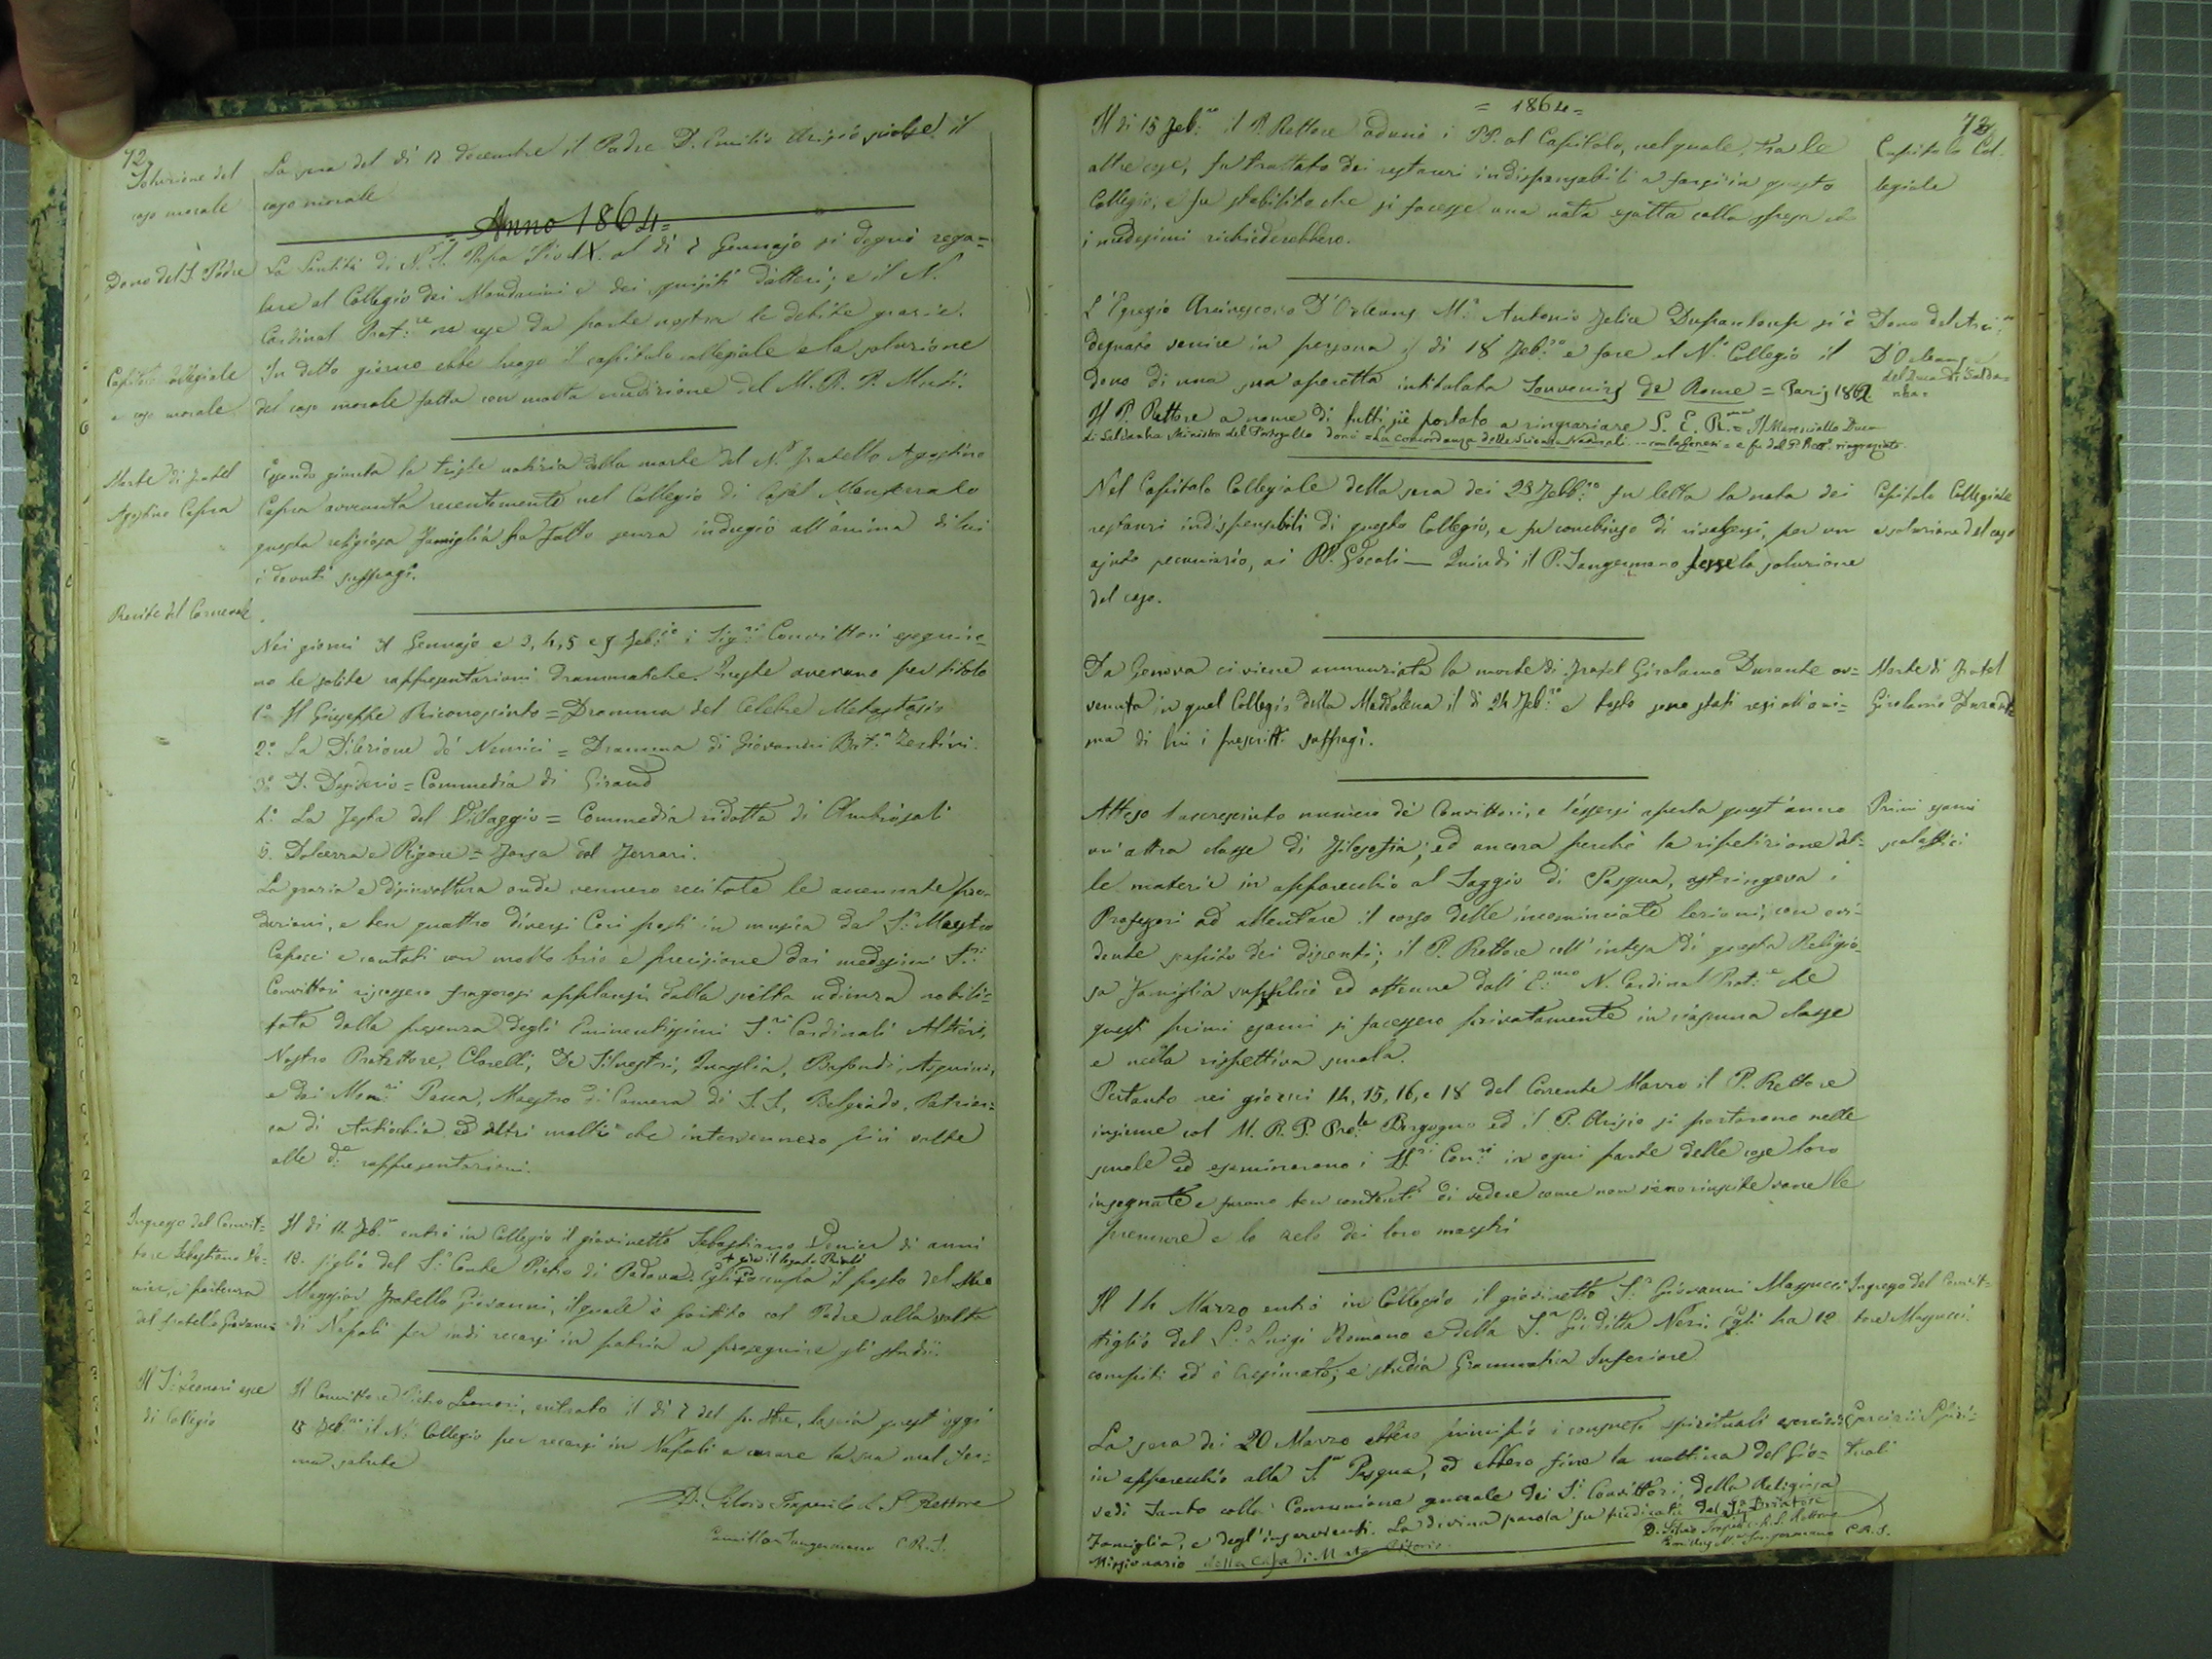 72
Soluzione del
caso morale
La sera del di 12 decembre il Padre D. Emilio Arisio sciolse il
caso morale
Anno 1864=
Dono del S. Padre
La Santità di N. S. Papa Pio IX. al di 7 Gennajo si degnò rega=
lare al Collegio dei Mandarini e dei squisiti datteri; e il N.
Cardinal Prot:re ne rese da parte nostra le debite grazie.
Capitolo collegiale
e caso morale
In detto giorno ebbe luogo il capitolo collegiale e la soluzione
del caso morale fatta con molta erudizione dal M. R. P. Muti.
Morte di fratel
Agostino Capra
Essendo giunta la triste notizia della morte del N. fratello Agostino
Capra avvenuta recentemente nel Collegio di Casal Monferrato
questa religiosa Famiglia ha fatto senza indugio all'anima di lui
i dovuti suffragi.
Recite del Carnevale
Nei giorni 31 Gennajo e 3, 4, 5 e 9 Feb:jo i Sig:ri Convittori esegui=
no le solite rappresentazioni drammatiche. Queste avevano per titolo
1.º Il Giuseppe Riconosciuto = Dramma del Celebre Metastasio
2.º La Dilezione dè Nemici = Dramma di Giovanni Bat.a
3.º D. Desiderio = Commedia di Giraud
4.º La Festa del Villaggio = Commedia ridotta di Ambrosoli
5. Dolcezza e Rigore = Farsa del Ferrari.
La grazia e disinvoltura onde vennero recitate le accennate pro=
duzioni, e ben quattro diversi Cori posti in musica dal S.r Maestro
Capocci e cantati con molto brio e precisione dai medesimi S.ri
Convittori riscossero fragorosi applausi dalla scelta udienza nobili=
tata dalla presenza degli Eminentissimi S.ri Cardinali Altieri,
Nostro Protettore, Clarelli, De Silvestri, Quaglia, Bofondi, Asquini,
e dai Mon:ri Pacca, Maestro di Camera di S. S., Belgrado, Patriar=
ca di Antiochia ed altri molti che intervennero più volte
alle d.e rappresentazioni.
Ingresso del Convit=
tore Sebastiano Ve=
nier, e partenza
del fratello Giovanni
Il di 12 Feb.o entrò in Collegio il giovinetto Sebastiano Venier di anni
10. figlio del S.r Conte Pietro di Padova. Egli occupa il posto del suo
+ gode il legato Rivaldi
Maggior Fratello Giovanni, il quale è partito col Padre alla volta
di Napoli per indi recarsi in patria a proseguire gli studii.
Il S.r Leonori esce
di Collegio
Il Convittore Pietro Leonori, entrato il di 7 del p. Xbre, lascia quest'oggi
15 Feb:jo il N. Collegio per recarsi in Napoli a curare la sua mal fer=
ma salute
D. Silvio Imperi C. R. S. Rettore
Camillo Sangermano C. R. S.
= 1864 =
73
Il di 15 Feb:ro il P. Rettore adunò i PP. al Capitolo, nel quale, tra le
altre cose, fu trattato dei restauri indispensabili a farsi in questo
Collegio; e fu stabilito che si facesse una nota esatta colla spesa che
i medesimi richiederebbero.
Capitolo Col=
legiale
L'Egregio Arcivescovo D'Orleans M.r Antonio Felice Dupanloup si è
degnato venire in persona il di 18 Feb:ro e fare al N. Collegio il
dono di una sua operetta intitolata Souvenirs de Rome = Paris 1862
Il P. Rettore a nome di tutti si è portato a ringraziare S. E. R.ma = Il Maresciallo Duca
di Saldanha Ministro del Portogallo donò = La concordanza delle Scienze Naturali ... con la Genesi = e fu dal P. Rett.e ringraziato.
Dono dell'Arci:vo
D'Orleans e
del Duca di Salda=
nha=
Nel Capitolo Collegiale della sera dei 23 Febb:ro fu letta la nota dei
restauri indispensabili di questo Collegio, e fu conchiuso di rivolgersi, per un
ajuto pecuniario, ai PP. Vocali — Quindi il P. Sangermano lesse la soluzione
del caso.
Capitolo Collegiale
e soluzione del caso
Da Genova ci viene annunziata la morte di Fratel Girolamo Durante av=
venuta in quel Collegio della Maddalena il di 24 Feb:ro e tosto sono stati resi all'ani=
ma di lui i prescritti suffragi.
Morte di Fratel
Girolamo Durante
Atteso l'accresciuto numero dè Convittori, e l'essersi aperta quest'anno
un'altra classe di Filosofia; ed ancora perchè la ripetizione del=
le materie in apparecchio al Saggio di Pasqua, astringeva i
Professori ad allentare il corso delle incominciate lezioni, con evi=
dente scapito dei discenti; il P. Rettore coll'intesa di questa Religio=
sa Famiglia supplicò ed ottenne dall'E:mo N. Cardinal Prot:e che
questi primi esami si facessero privatamente in ciascuna classe
e nella rispettiva scuola.
Pertanto nei giorni 14, 15, 16, e 18 del Corrente Marzo il P. Rettore
insieme col M. R. P. Pro:le Borgogno ed il P. Arisio si portarono nelle
scuole ed esaminarono i SS.ri Con:ri in ogni parte delle cose loro
insegnate e furono ben contenti di vedere come non sieno riuscite vane le
premure e lo zelo dei loro maestri
Primi esami
scolastici
Il 14 Marzo entrò in Collegio il giovinetto S.r Giovanni Massucci
figlio del S.r Luigi Romano e della S.ra Giuditta Neri. Egli ha 12
compiti ed è Cresimato; e studia Grammatica Inferiore
Ingresso del Convit=
tore Massucci.
La sera dei 20 Marzo ebbero principio i consueti spirituali esercizii
in apparecchio alla S.ta Pasqua, ed ebbero fine la mattina del Gio=
vedi Santo colla Comunione generale dei S.ri Convittori, della Religiosa
Famiglia, e degl'inservienti. La divina parola fu predicata dal Sig.
Missionario della Casa di M.te Citorio.
Esercizii Spiri=
tuali
D. Silvio Imperi C. R. S. Rettore
Sangermano C. R. S.